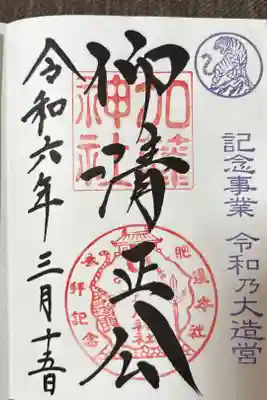 記念事業 令和乃大造営
仰清正公
加藤
神社
参拝記念
令和六年 三月十五日